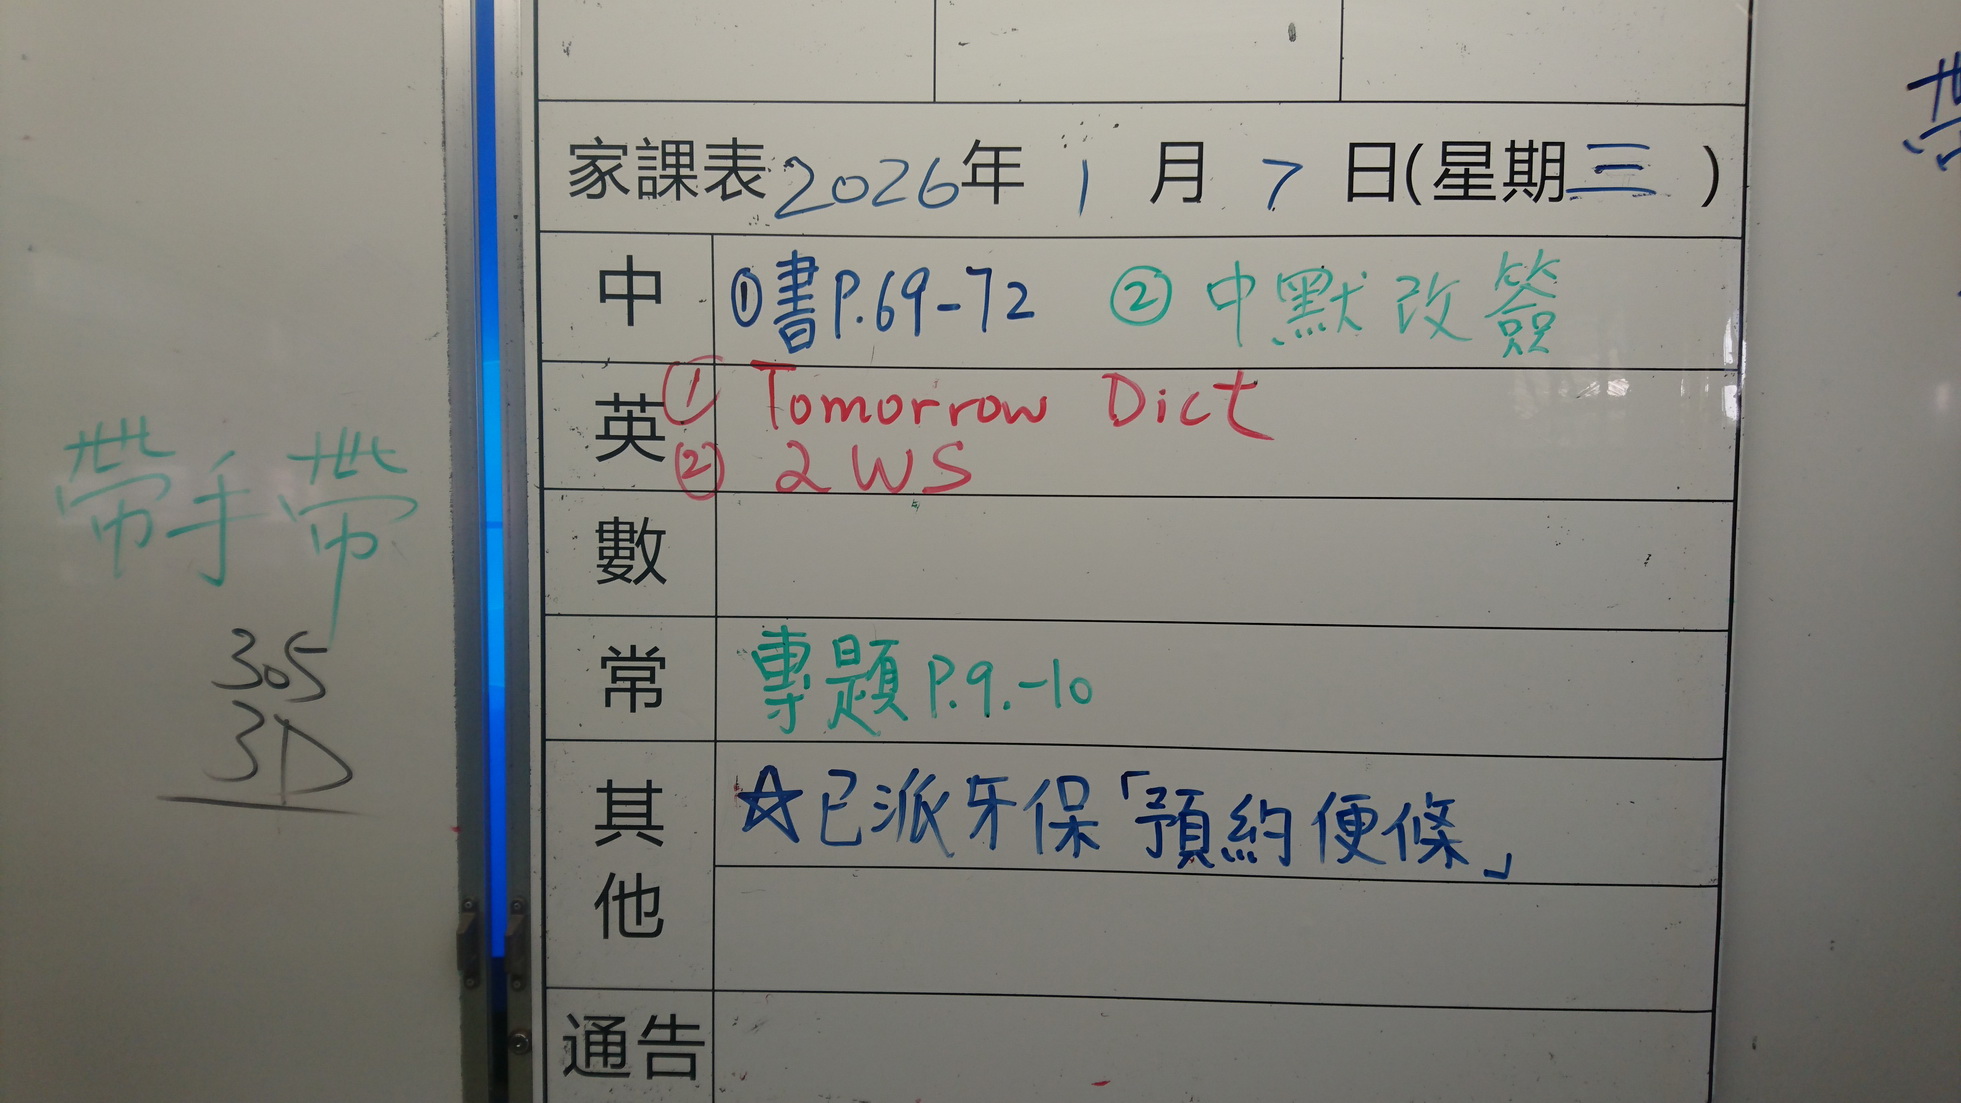 家課表 2026年 1 月 7 日(星期三)
中 ①書P.69-72 ②中默改簽
英 ① Tomorrow Dict
② 2 WS
數
常 專題 P.9.-10
其他 ☆已派牙保「預約便條」
通告
帶手帶
305
3D